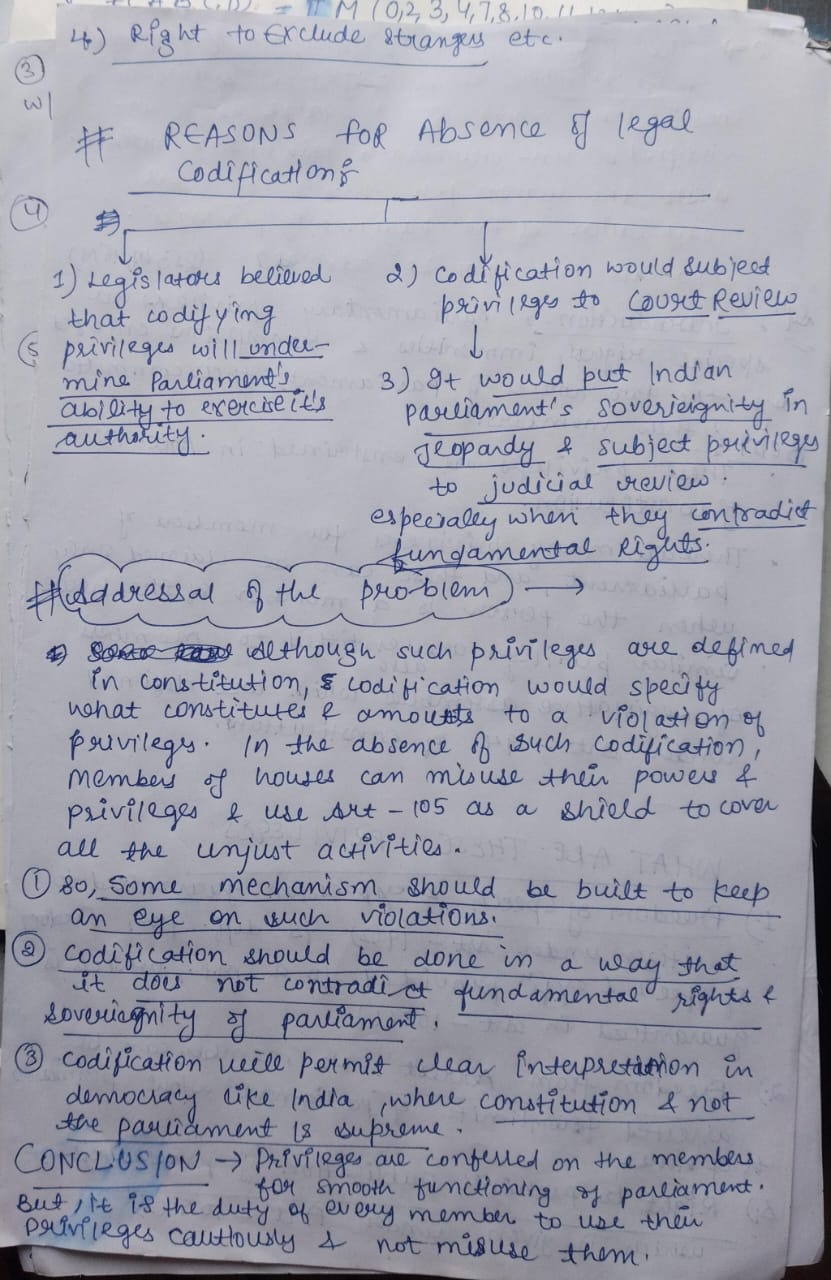 M (0,2,3,4,7,8,10,11
4) Right to Exclude strangers etc.
3
w/
# REASONS foR Absence of legal
Codifications
4
1) Legislators believed
that codifying
privileges will under-
mine Parliament's
ability to exercise it's
authority.
5
2) Codification would subject
privileges to Court Review
3) It would put Indian
parliament's soverieignity in
jeopardy & subject privileges
to judicial review.
especially when they contradict
fundamental Rights.
# Addressal of the problem →
Although such privileges are defined
in constitution, codification would specify
what constitutes & amounts to a violation of
privilegs. In the absence of such codification,
members of houses can misuse their powers &
privileges & use Art - 105 as a shield to cover
all the unjust activities.
① So, Some mechanism should be built to keep
an eye on such violations.
② Codification should be done in a way that
it does not contradict fundamental rights &
sovericgnity of parliament.
③ Codification will permit clear interpretation in
democracy like India, where constitution & not
the parliament is supreme.
CONCLUSION → Privileges are conferred on the members
for smooth functioning of parliament.
But, it is the duty of every member to use their
privileges cautiously & not misuse them.